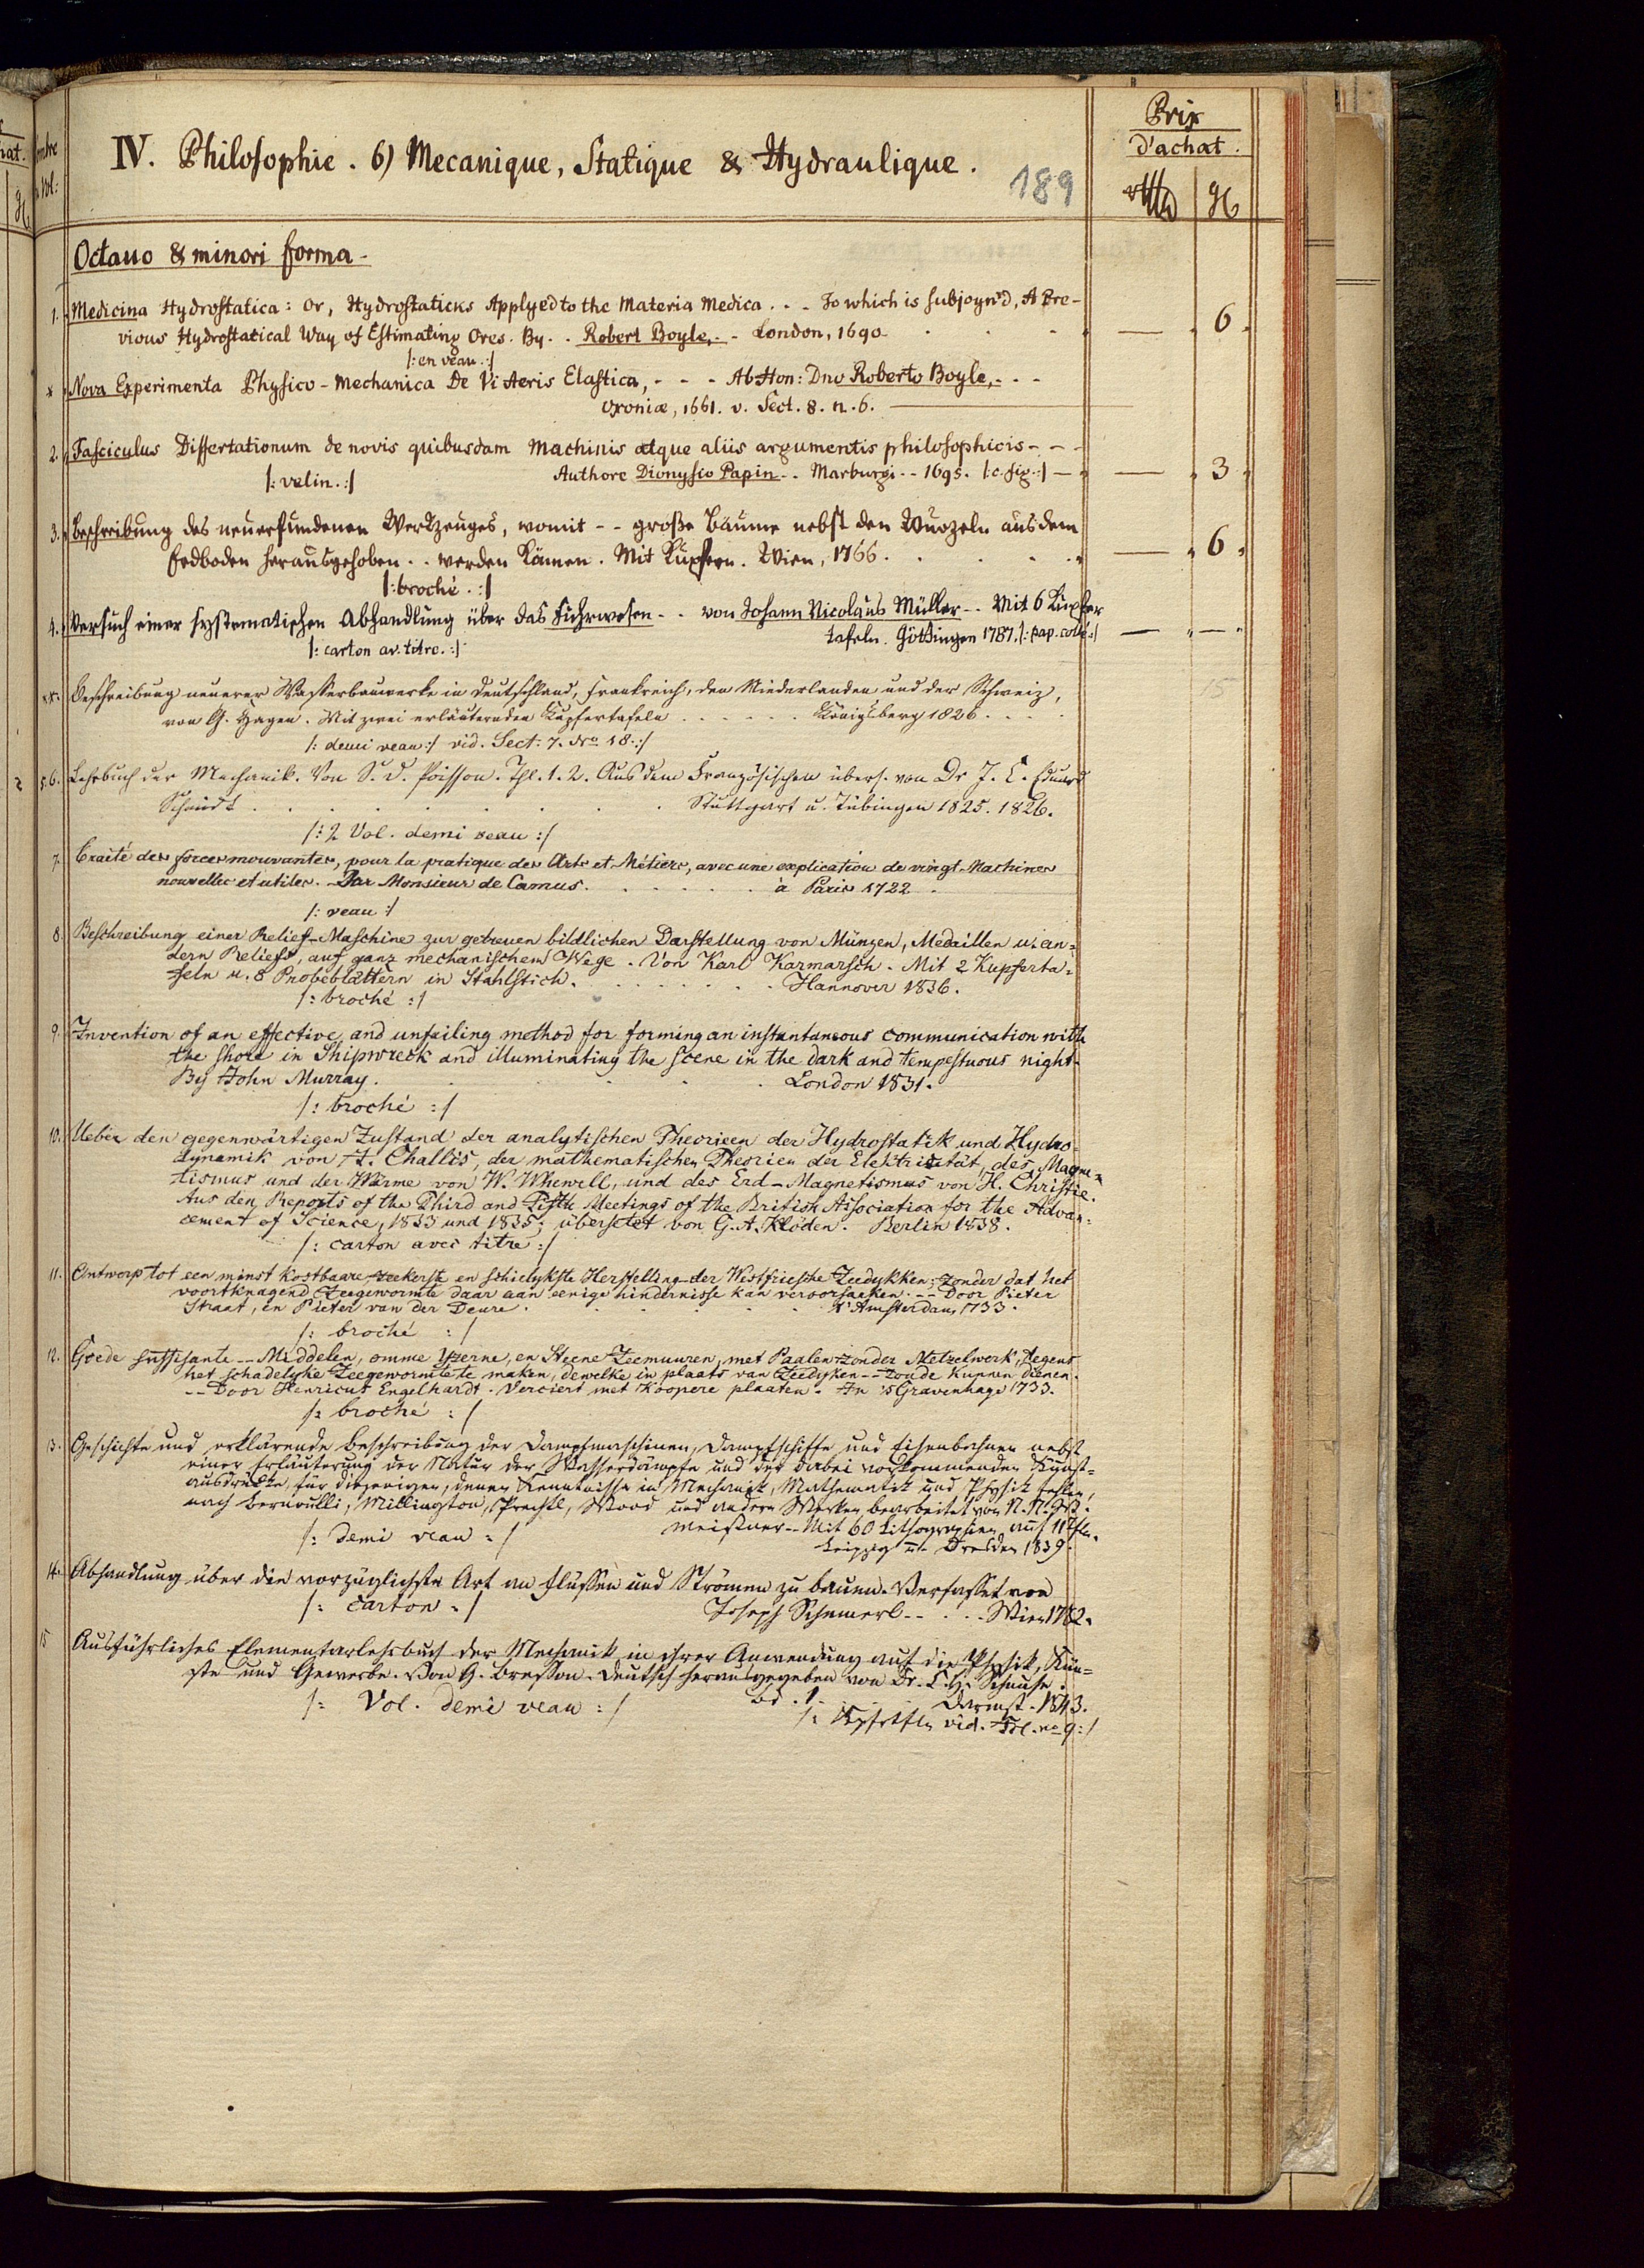 IV. Philosophie. 6) Mecanique, Statique & Hydraulique.
189
Prix
d'achat.
Octauo & minori forma -
1. Medicina Hydrostatica: Or, Hydrostaticks Applyed to the Materia Medica . . - To which is subjoyn'd, A Pre-
vious Hydrostatical Way of Estimating Ores. By . . Robert Boyle, . - London, 1690. 6.
/: en veau. :/
* Nova Experimenta Physico-Mechanica De Vi Aeris Elastica, - - - Ab Hon: Dno Roberto Boyle, - - -
Oxoniæ, 1661. v. Sect. 8. n. 6.
2. Fasciculus Dissertationum de novis quibusdam machinis atque aliis argumentis philosophicis - - -
/: velin. :/ Authore Dionysio Papin - . Marburgi - - 1695. /: c. fig. :/ 3
3. Beschreibung des neuerfundenen Werkzeuges, womit - - große Bäume nebst den Wurzeln aus dem
Erdboden herausgehoben . . werden können. Mit Kupfern. Wien, 1766. 6.
/: broché. :/
4. Versuch einer systematischen Abhandlung über das Fuhrwesen - . von Johann Nicolaus Müller - - Mit 6 Kupfer
tafeln. Göttingen 1787. /: pap. collé :/
/: carton av. titre. :/
**. Beschreibung neuerer Wasserbauwerke in Deutschland, Frankreich, den Niederlanden und der Schweiz, 15
von G. Hagen. Mit zwei erläuternden Kupfertafeln . . . . . . Königsberg 1826. . . .
/: demi veau :/ vid. Sect: 7. No 18. :/
5.6. Lehrbuch der Mechanik. Von S. D. Poisson. Thl. 1. 2. Aus dem Französischen übers. von Dr J. C. Eduard
Schmidt . . . . . . . Stuttgart u. Tübingen 1825. 1826.
/: 2 Vol. demi veau :/
7. Traité des forces mouvantes, pour la pratique des Arts et Métiers, avec une explication de vingt Machines
nouvelles et utiles. Par Monsieur de Camus. . . . . . . à Paris 1722.
/: veau :/
8. Beschreibung einer Relief-Maschine zur getreuen bildlichen Darstellung von Münzen, Medaillen u. an-
dern Reliefs, auf ganz mechanischem Wege. Von Karl Karmarsch. Mit 2 Kupferta-
feln u. 8 Probeblättern in Stahlstich. . . . . . . . Hannover 1836.
/: broché :/
9. Invention of an effective and unfailing method for forming an instantaneous communication with
the shore in Shipwreck and illuminating the scene in the dark and tempestuous night.
By John Murray. . . . . . London 1831.
/: broché :/
10. Ueber den gegenwärtigen Zustand der analytischen Theorieen der Hydrostatik und Hydro-
dynamik von J. Challis, der mathematischen Theorien der Elektricität, des Magne-
tismus und der Wärme von W. Whewell, und des Erd-Magnetismus von H. Christie.
Aus den Reports of the Third and Fifth Meetings of the British Association for the Advan-
cement of Science, 1833 und 1835; übersetet von G. A. Klöden. Berlin 1838.
/: carton avec titre :/
11. Ontworp tot een minst kostbaare zeekerste en schielykste Herstelling der Westfriesche Zeedykken; zonder dat het
voortknagend Zeegewormte daar aan eenige hindernisse kan veroorsaeken. -- Door Pieter
Straat, en Pieter van der Deure. . . . . . . t'Amsterdam 1733.
/: broché :/
12. Goede suffisante -- Middelen, omme Yzerne, en Steene Zeemuuren, met Paalen zonder Metzelwerk, tegens
het schadelyke Zeegewormte te maken, dewelke in plaats van Zeedyken -- zoude kunnen dienen.
-- Door Henricus Engelhardt. Verciert met Koopere plaaten. In 's Gravenhage 1733.
/: broché :/
13. Geschichte und erklärende Beschreibung der Dampfmaschinen, Dampfschiffe und Eisenbahnen nebst
einer Erläuterung der Natur der Wasserdämpfe und der dabei vorkommenden Kunst-
ausdrücke, für diejenigen, denen Kenntnisse in Mechanik, Mathematik und Physik fehlen,
nach Bernoulli, Millington, Prechtl, Wood und andern Werken bearbeitet von N. N. W.
Meißner -- Mit 60 Lithographien auf 11 Tfln.
/: demi veau :/ Leipzig u. Dresden 1839.
14. Abhandlung über die vorzüglichste Art an Flüssen und Strömen zu bauen. Verfasset von
/: carton :/ Joseph Schemerl -- . . - Wien 1782.
15 Ausführliches Elementarlehrbuch der Mechanik in ihrer Anwendung auf die Physik, Kün-
ste und Gewerbe. Von G. Bresson. Deutsch herausgegeben von Dr. C. H. Schnuse.
/: Vol. demi veau :/ Bd. 1. . . . . Darmst. 1843.
/: Kpfrtfln vid. Fol. no 9 :/